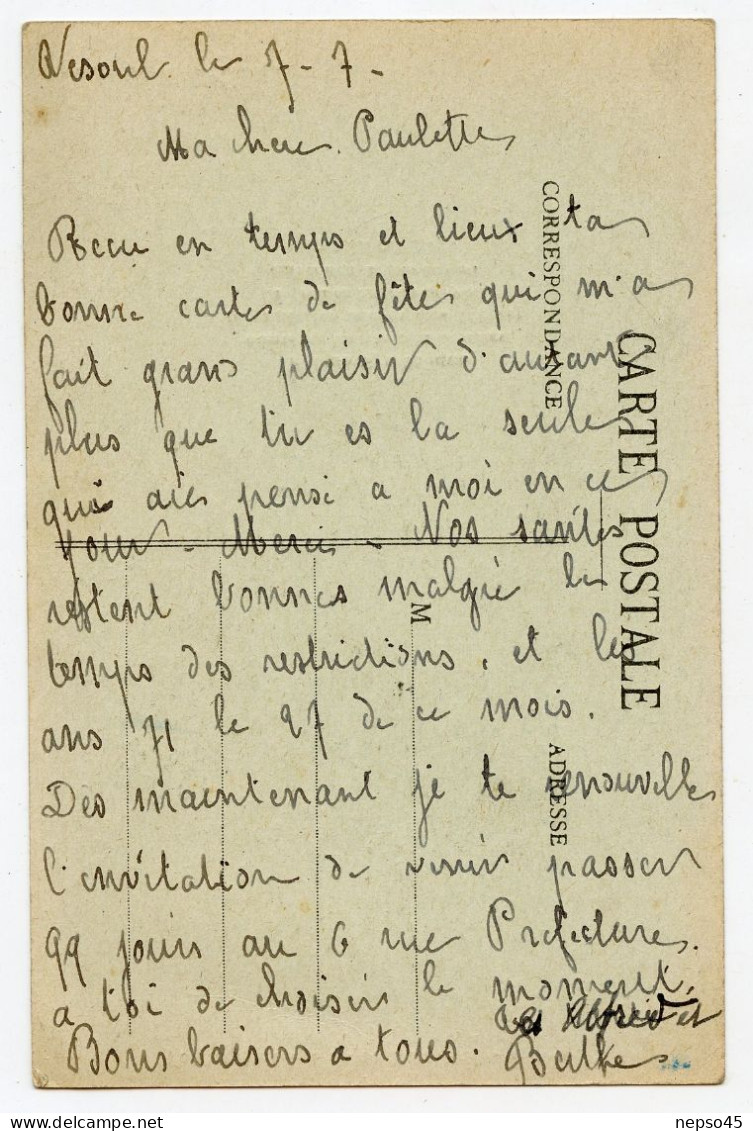 Vesoul le 7-7-
Ma chere Paulette
Recu en temps et lieux ta
bonne cartes de fêtes qui m'a
fait grans plaisir d'autant
plus que tu es la seule
qui aies pensé a moi en ce
jour - Merci - Nos santés
restent bonnes malgré le
temps des restrictions, et les
ans 71 le 27 de ce mois.
Des maintenant je te renouvelle
l'invitation de venir passer
qq jours au 6 rue Prefecture.
a toi de choisir le moment.
Bons baisers a tous.
et
Berthe
CORRESPONDANCE
CARTE POSTALE
M
ADRESSE
nepso45